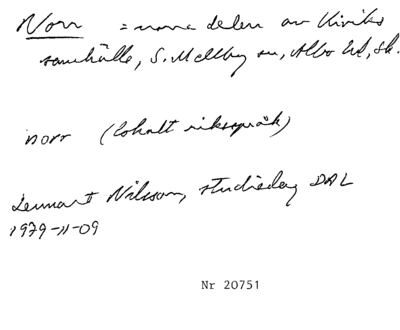 Norr = norra delen av Kiviks
samhälle, S. Mellby sn, Albo hd, Sk.
norr (lokalt riksspråk)
Lennart Nilsson, studiedag DAL
1979-11-09
Nr 20751